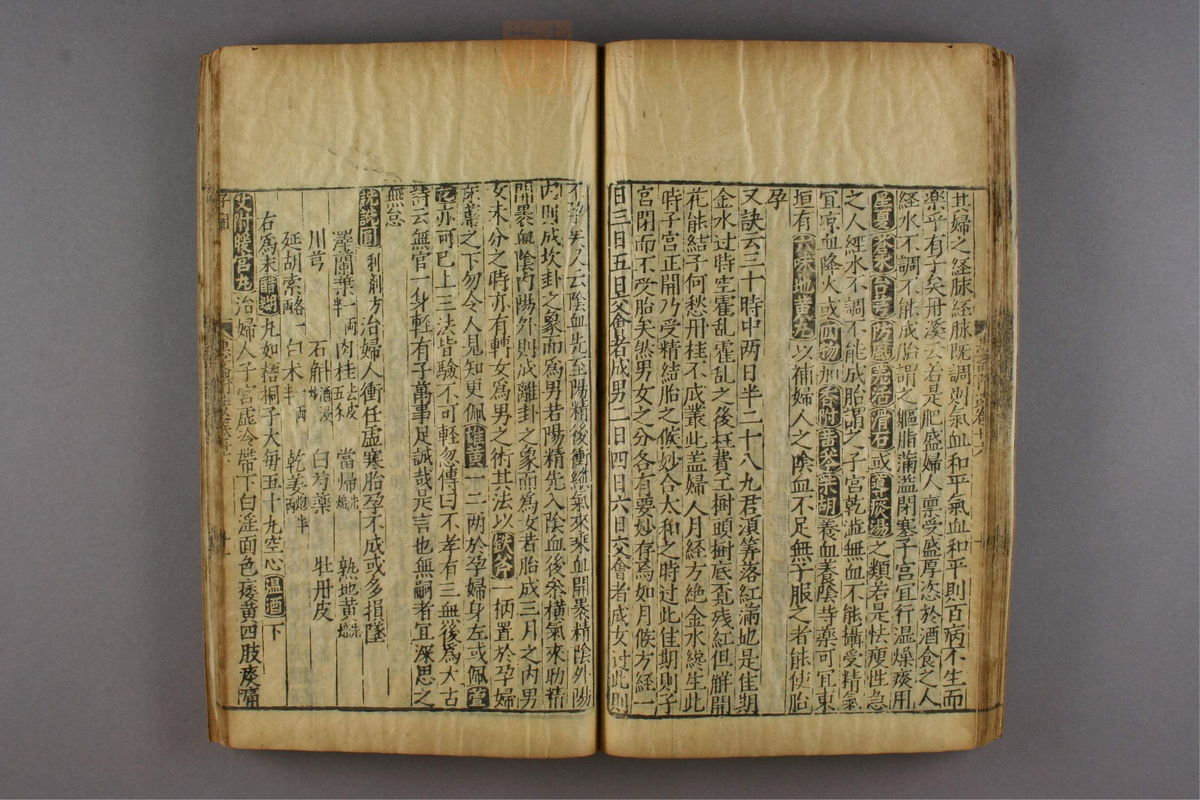 其婦之経脉経脉既調則氣血和平氣血和平則百病不生而
樂乎有子矣丹溪云若是肥盛婦人禀受盛厚恣於酒食之人
経水不調不能成胎謂之軀脂滿溢閉塞子宮宜行湿燥痰用
星夏蒼朮台芎防風羌活滑石或導痰湯之類若是怯瘦性急
之人経水不調不能成胎謂之子宮乾澁無血不能攝受精氣
宜凉血降火或四物加香附黄芩柴胡養血養陰等藥可宜東
垣有六味地黄丸以補婦人之陰血不足無子服之者能使胎
孕
又訣云三十時中两日半二十八九君湏筭落紅滿地是佳期
金水过時空霍乱霍乱之後枉費工樹頭樹底覔残紅但解開
花能結子何愁丹桂不成叢此盖婦人月経方絶金水纔生此
時子宮正開乃受精結胎之候妙合太和之時过此佳期則子
宮閉而不受胎矣然男女之分各有要妙存焉如月候方経一
日三日五日交會者成男二日四日六日交會者成女过此則
不孕矣人云陰血先至陽精後衝縱氣來乘血開褁精陰外陽
内則成坎卦之象而為男若陽精先入陰血後参横氣來助精
開褁血陰内陽外則成離卦之象而為女若胎成三月之内男
女未分之時亦有轉女為男之术其法以鈇斧一柄置於孕婦
床蓆之下勿令人見知更佩雄黄一二两於孕婦身左或佩萱
花亦可已上三法皆驗不可軽忽傳曰不孝有三無後為大古
詩云無官一身軽有子萬事足誠哉是言也無嗣者宜深思之
無怠
詵詵圓 利剤方治婦人衝任虛寒胎孕不成或多損墜
澤蘭葉一两半 肉桂去皮五夕 當歸洗焙 熟地黄洗焙
川芎 石斛酒浸炒 白芍藥 牡丹皮
延胡索各一两 白术一两半 乾姜炮半两
右為末醋糊丸如梧桐子大每五十丸空心温酒下
艾附暖宮丸 治婦人子宮虛冷帶下白淫面色痿黄四肢痠痛